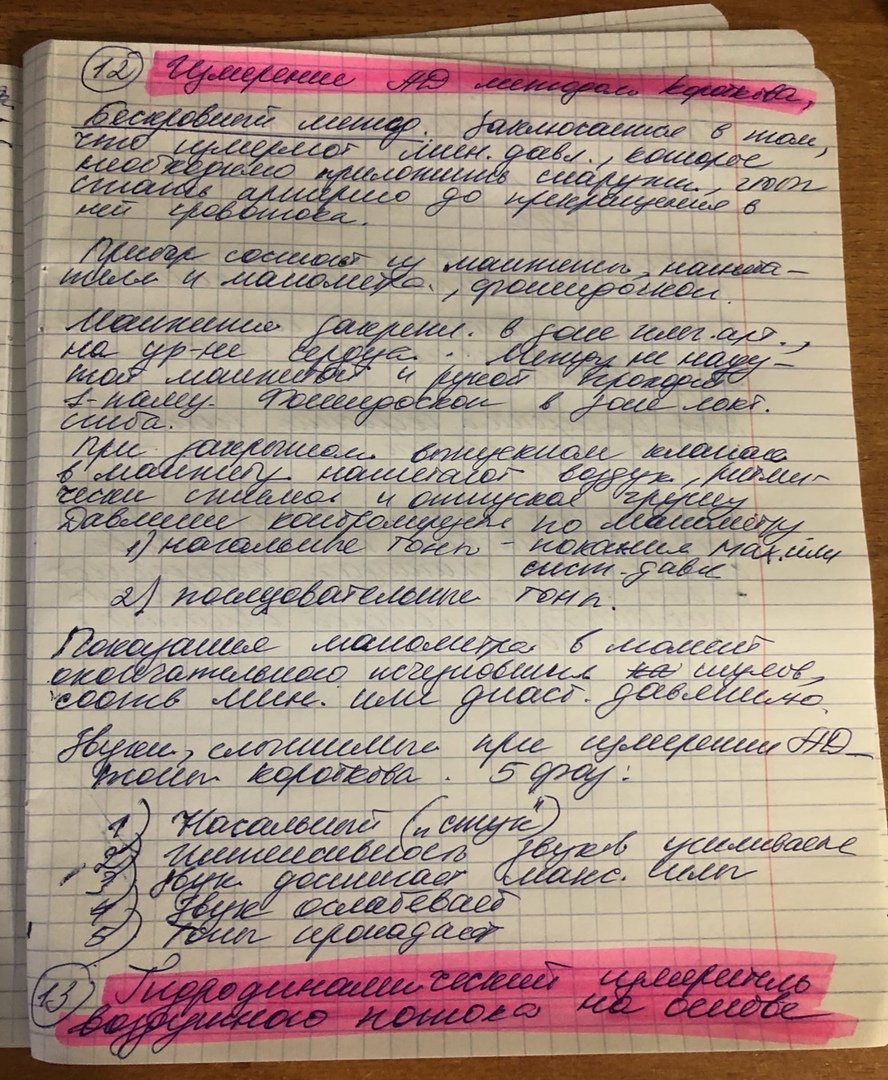 12 Измерение АД методом Короткова,
Бескровный метод. Заключается в том,
что измеряют мин. давл., которое
необходимо приложить снаружи, чтоб
сжать артерию до прекращения в
ней кровотока.
Прибор состоит из манжеты, нагнета-
теля и манометра, фонендоскоп.
Манжета закрепл. в зоне плеч. арт.,
на ур-не сердца. Между не наду-
той манжетой и рукой проходят
1-палец. Фонендоскоп в зоне локт.
сгиба.
При закрытом выпускном клапане
в манжету нагнетают воздух, ритми-
чески сжимая и отпуская грушу
Давление контролируется по манометру
1) начальные тоны - показания мах. или
сист. давл
2) последовательные тоны.
Показания манометра в момент
окончательного исчезновения шумов,
соотв мин. или диаст. давлению.
Звуки, слышимые при измерении АД_
тоны короткова. 5 фаз:
1) Начальный („стук")
2) Интенсивность звуков усиливается
3) Звук достигает макс. силы
4) Звук ослабевает
5) Тоны пропадают
13 Гидродинамический измеритель
воздушного потока на основе